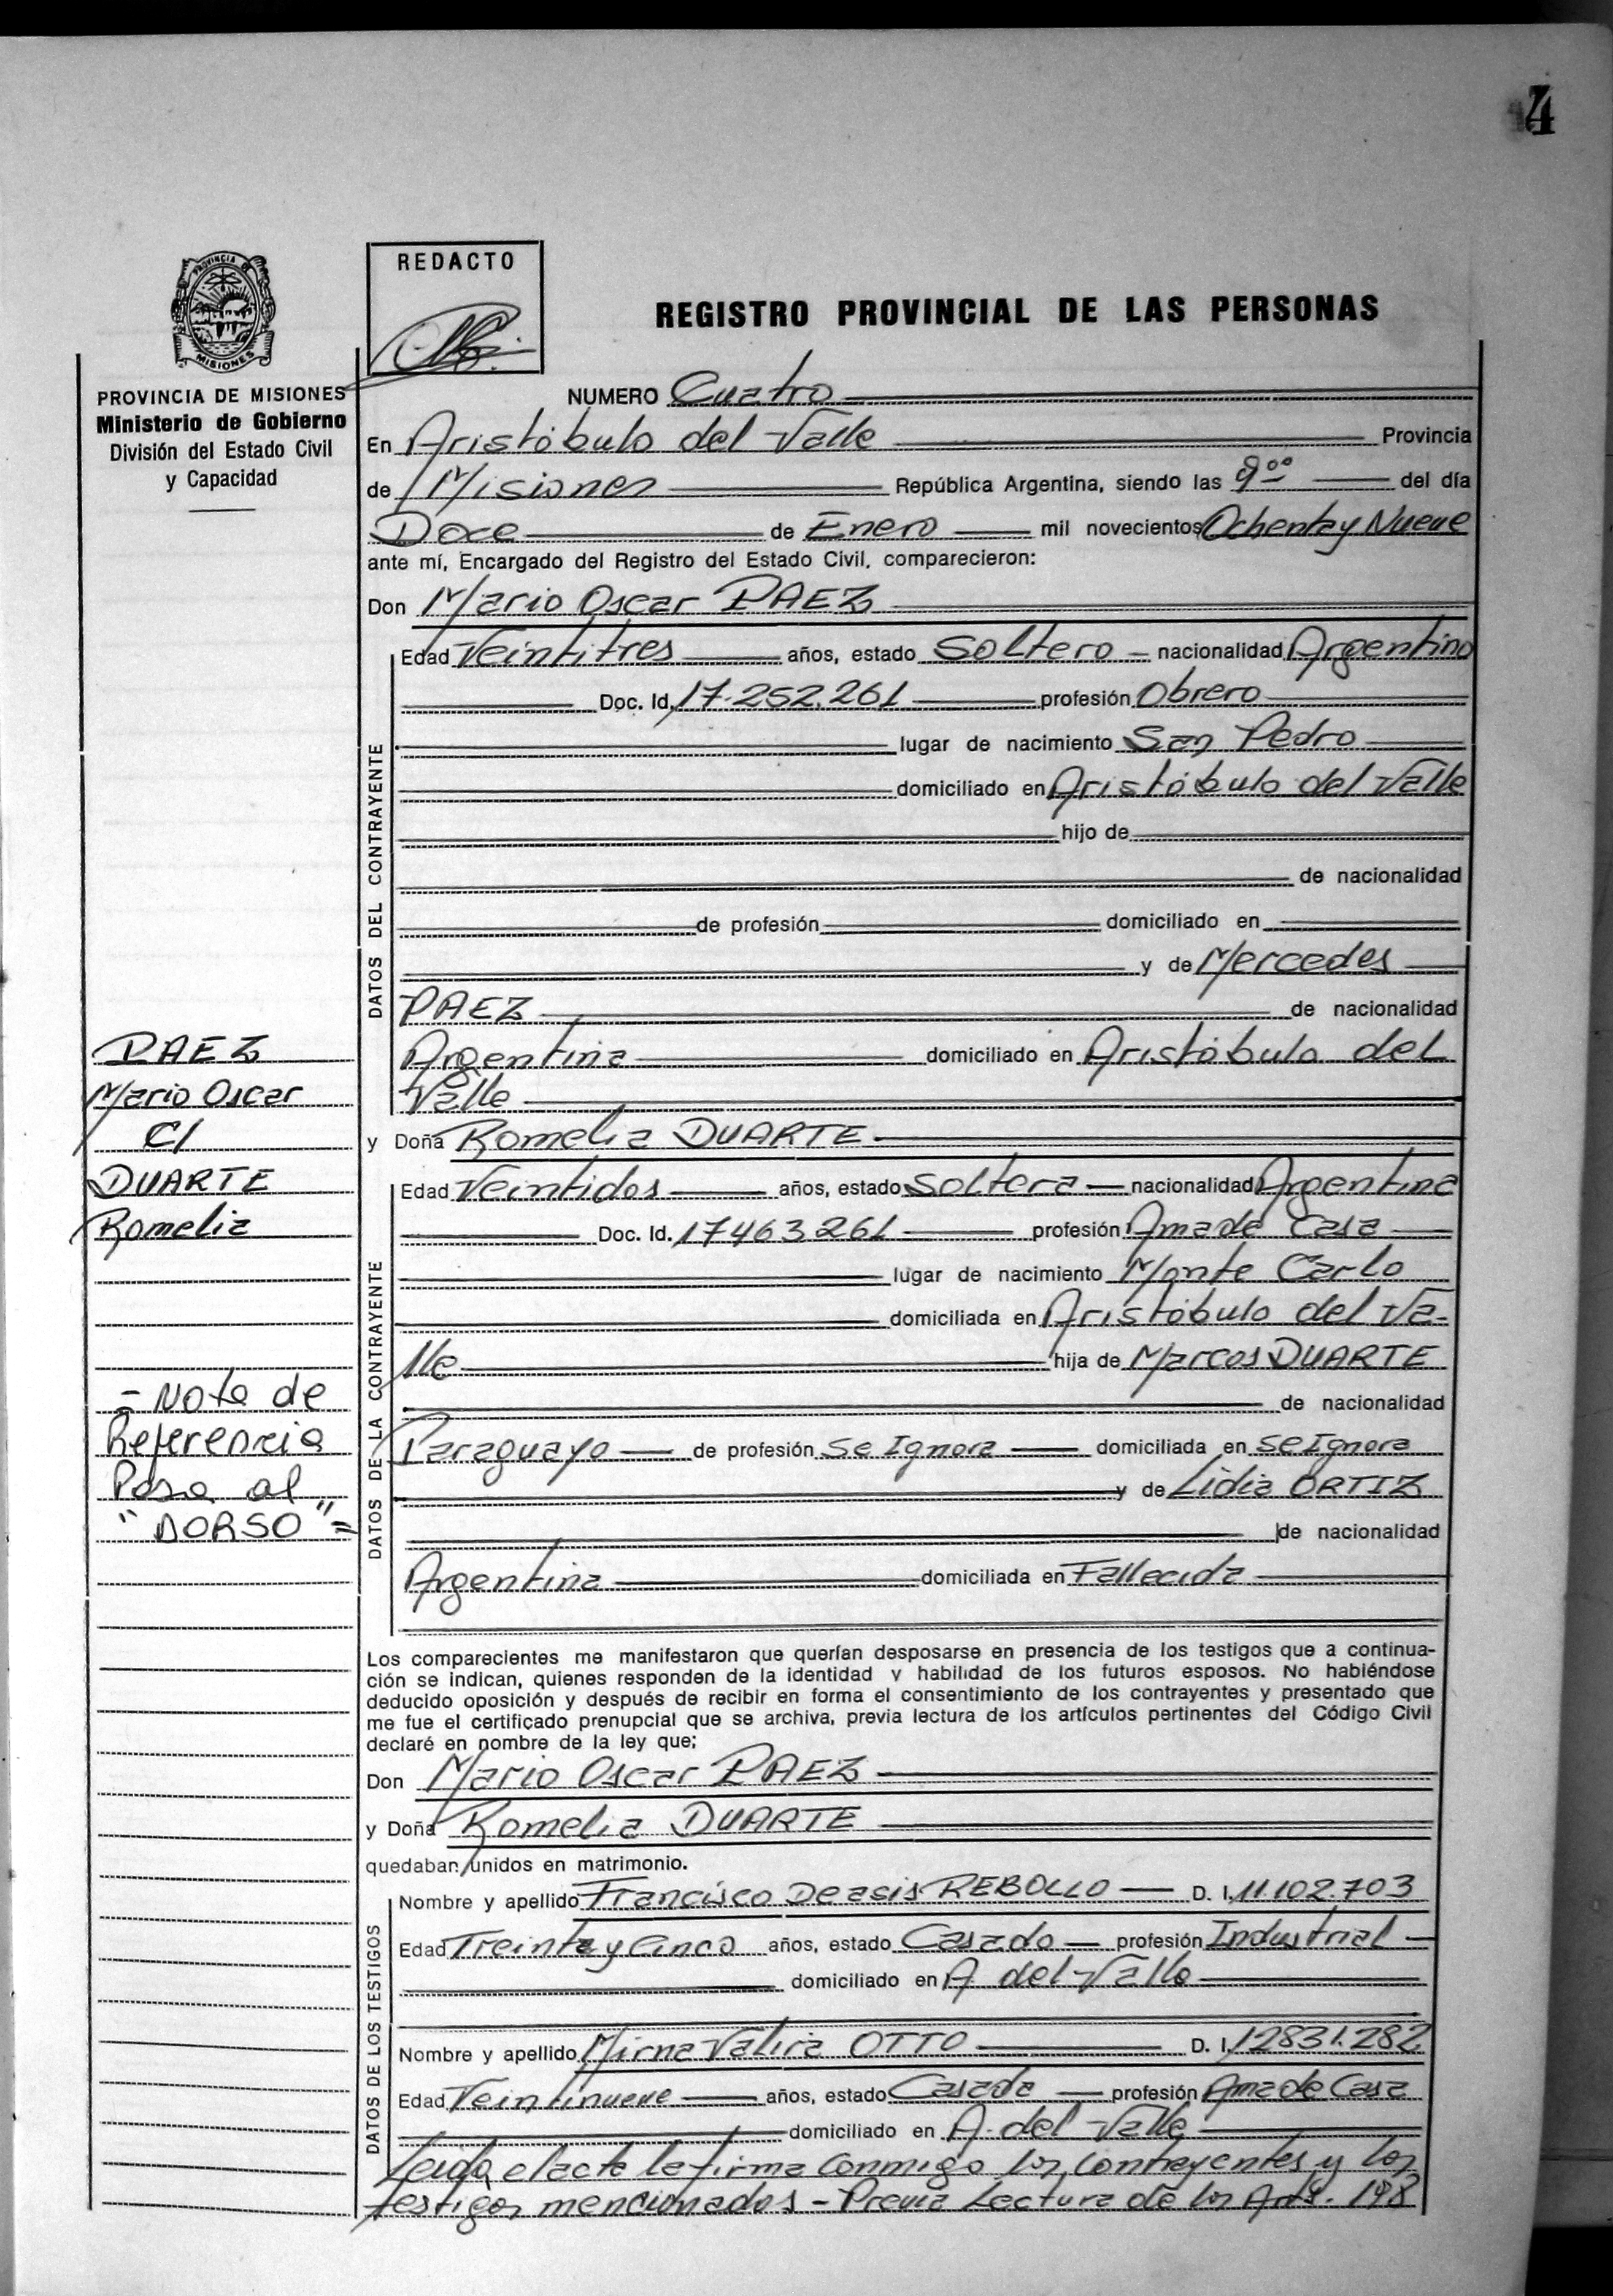 4
PROVINCIA DE
MISIONES
REDACTO
REGISTRO PROVINCIAL DE LAS PERSONAS
PROVINCIA DE MISIONES
Ministerio de Gobierno
División del Estado Civil
y Capacidad
NUMERO Cuatro
En Aristóbulo del Valle Provincia
de Misiones República Argentina, siendo las 9:00 del día
Doce de Enero mil novecientos Ochenta y Nueve
ante mí, Encargado del Registro del Estado Civil, comparecieron:
Don Mario Oscar PAEZ
DATOS DEL CONTRAYENTE
Edad Veintitres años, estado Soltero nacionalidad Argentino
Doc. Id. 17.252.261 profesión Obrero
lugar de nacimiento San Pedro
domiciliado en Aristóbulo del Valle
hijo de
de nacionalidad
de profesión domiciliado en
y de Mercedes
PAEZ de nacionalidad
Argentina domiciliado en Aristóbulo del
Valle
PAEZ
Mario Oscar
C/
DUARTE
Romelia
y Doña Romelia DUARTE
DATOS DE LA CONTRAYENTE
Edad Veintidos años, estado soltera nacionalidad Argentina
Doc. Id. 17463261 profesión Ama de Casa
lugar de nacimiento Monte Carlo
domiciliada en Aristóbulo del Va-
lle hija de Marcos DUARTE
de nacionalidad
Paraguayo de profesión Se Ignora domiciliada en se Ignora
y de Lidia ORTIZ
de nacionalidad
Argentina domiciliada en Fallecida
- Nota de
Referencia
Pasa al
"DORSO"=
Los comparecientes me manifestaron que querían desposarse en presencia de los testigos que a continua-
ción se indican, quienes responden de la identidad y habilidad de los futuros esposos. No habiéndose
deducido oposición y después de recibir en forma el consentimiento de los contrayentes y presentado que
me fue el certificado prenupcial que se archiva, previa lectura de los artículos pertinentes del Código Civil
declaré en nombre de la ley que:
Don Mario Oscar PAEZ
y Doña Romelia DUARTE
quedaban unidos en matrimonio.
DATOS DE LOS TESTIGOS
Nombre y apellido Francisco De asis REBOLLO D. I. 11.102.703
Edad Treinta y Cinco años, estado Casado profesión Industrial
domiciliado en A. del Valle
Nombre y apellido Mirna Valira OTTO D. I. 12831.282
Edad Veintinueve años, estado Casada profesión Ama de Casa
domiciliado en A. del Valle
Leida el acta la firma Conmigo los Contrayentes y los
testigos mencionados - Previa Lectura de los Arts. 198